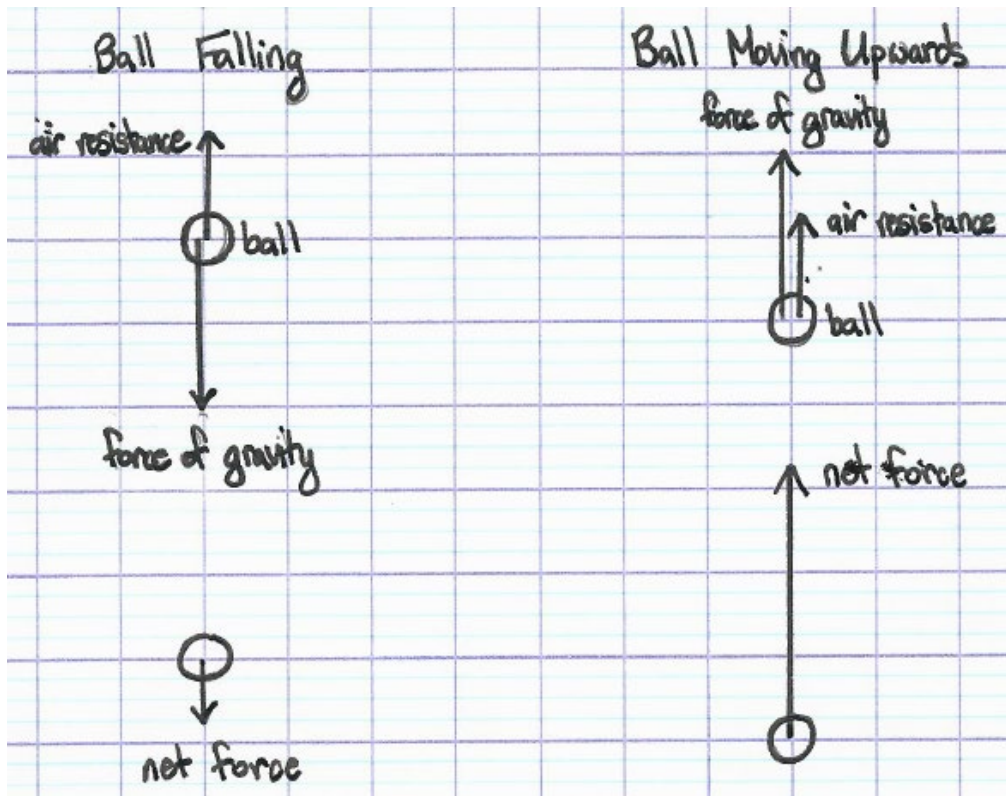 Ball Falling
air resistance
ball
force of gravity
net force
Ball Moving Upwards
force of gravity
air resistance
ball
net force